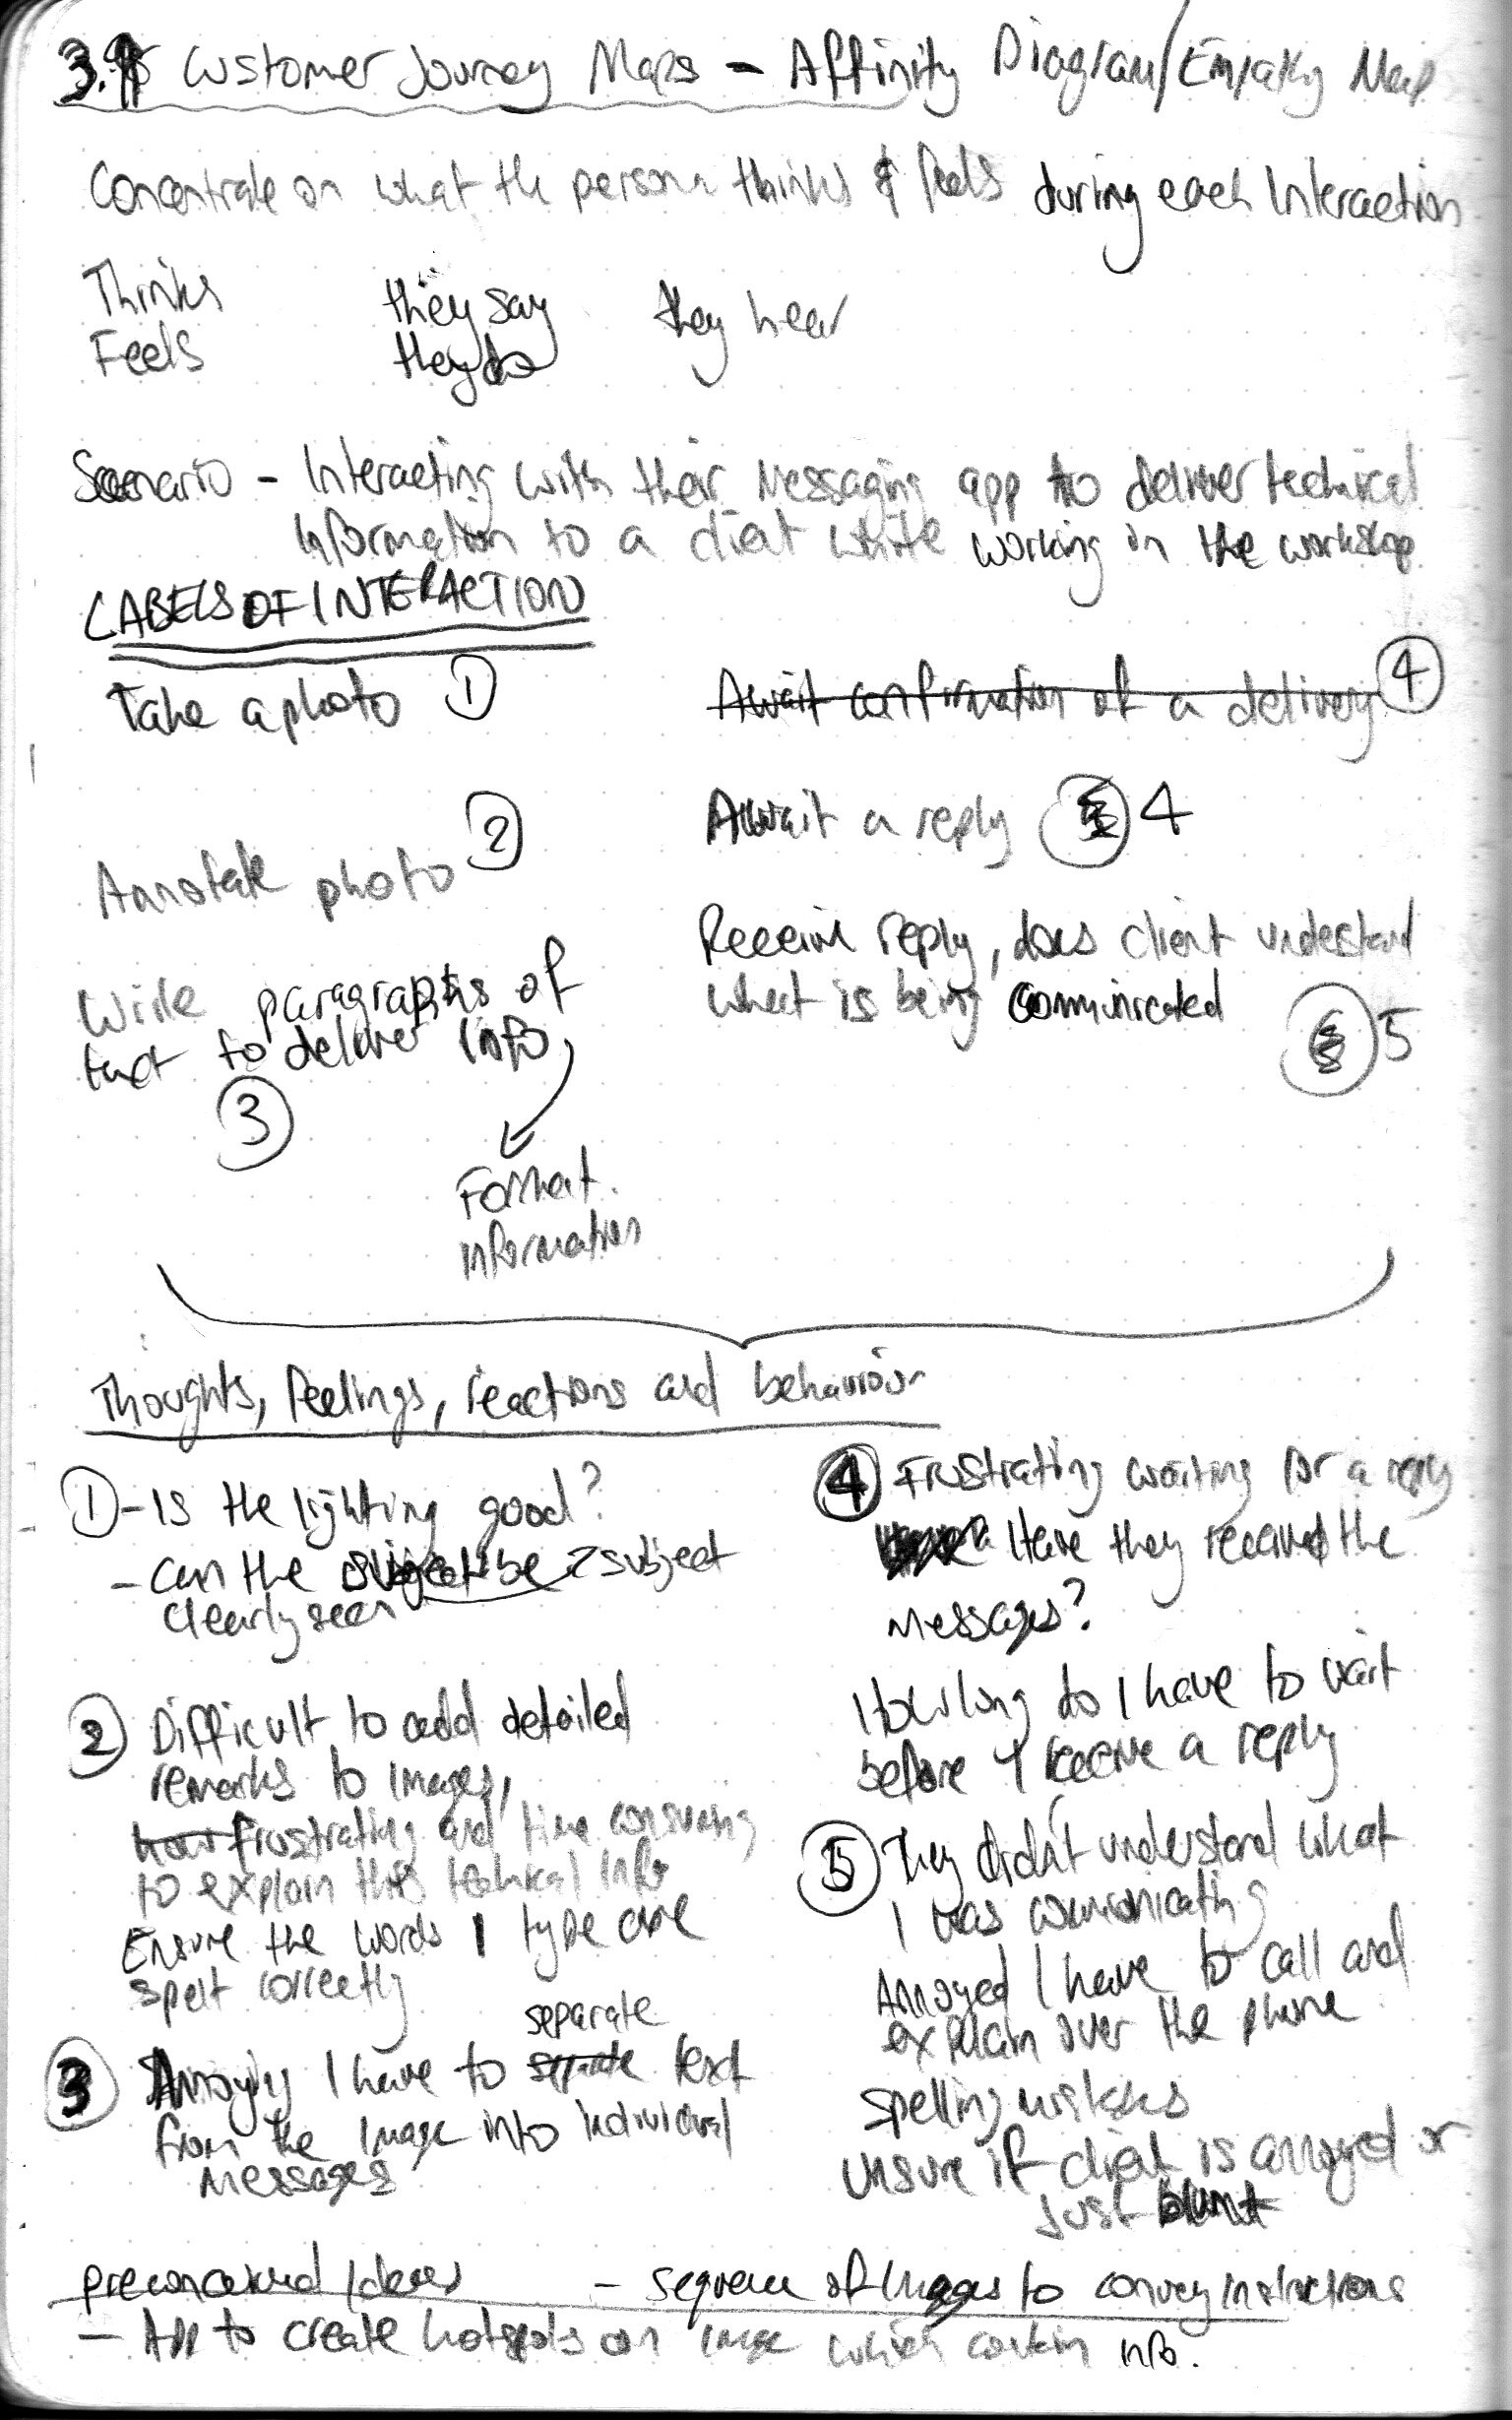 Customer Journey Maps - Affinity Diagram/Empathy Map
Concentrate on what the persona thinks & feels during each Interaction
Thinks
Feels
they say
they do
they hear
Scenario - Interacting with their Messaging app to deliver technical
Information to a client while working in the workshop
LABELS OF INTERACTION
Take a photo 1
Annotate photo 2
Write paragraphs of
text to deliver info,
3
Format
information
Await confirmation of a delivery 4
Await a reply 4
Receive reply, does client understand
what is being communicated
5
Thoughts, feelings, reactions and behaviour
1 - Is the lighting good?
- Can the subject be subject
clearly seen
2 Difficult to add detailed
remarks to images,
how frustrating and time consuming
to explain this technical info
Ensure the words I type are
spelt correctly
3 Annoying I have to separate text
from the Image into individual
messages
4 Frustrating waiting for a reply
Have they received the
messages?
How long do I have to wait
before I receive a reply
5 They didn't understand what
I was communicating
Annoyed I have to call and
explain over the phone
spelling mistakes
Unsure if client is annoyed or
just blunt
preconceived Ideas
- sequence of Images to convey instructions
- App to create hotspots on image which contain info.